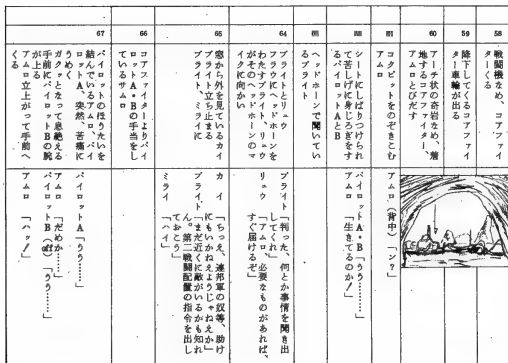 58
戦闘機なめ、コアファイ
ターくる
59
降下してくるコアファイ
ター車輪が出る
60
アーチ状の奇岩なめ、着
地するコアファイター、
アムロとびだす
61
コクピットをのぞきこむ
アムロ
アムロ(背中)「ン?」
62
シートにしばりつけられ
て苦しげに身じろぎをす
るパイロットAとB
パイロットA・B「うう……」
アムロ「生きてるのか!」
63
ヘッドホーンで聞いてい
るブライト
64
ブライトとリュウ
フラウにヘッドホーンを
わたすブライト、リュウ
がそのヘッドホーンのマ
イクに向かい
ブライト「判った、何とか事情を聞き出
してくれ」
リュウ「アムロ、必要なものがあれば、
すぐ届けるぞ」
65
窓から外を見ているカイ
ブライト立ち止まる
ブライト、ミライに
カイ「ちっえ、連邦軍の奴等、助け
にもいかねえようじゃねえか」
ブライト「まだ近くに敵がいるかも知れ
ん。第二戦闘配置の指令を出し
ておこう」
ミライ「ハイ」
66
コアファイターよりパイ
ロットA・Bの手当をし
ているサムロ
67
パイロットのほうたいを
結んでいるアムロ、パイ
ロットA、突然、苦痛に
うめく
ガクッとなって息絶える
手前にパイロットBの腕
が上る
アムロ立上がって手前へ
くる
パイロットA「うう……」
アムロ「だめか……」
パイロットB(off)「うう……」
アムロ「ハッ!」